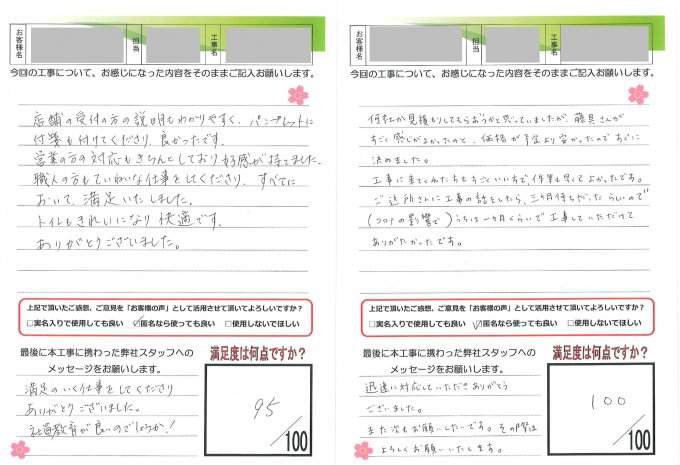 お客様名
担当
工事名
今回の工事について、お感じになった内容をそのままご記入お願いします。
店舗の受付の方の説明もわかりやすく、パンフレットに
付箋も付けてくださり、良かったです。
営業の方の対応もきちんとしており好感が持てました。
職人の方もていねいな仕事をしてくださり、すべてに
おいて、満足いたしました。
トイレもきれいになり快適です。
ありがとうございました。
上記で頂いたご感想、ご意見を「お客様の声」として活用させて頂いてよろしいですか?
□実名入りで使用しても良い ☑匿名なら使っても良い □使用しないでほしい
最後に本工事に携わった弊社スタッフへの
メッセージをお願いします。
満足のいく仕事をしてくださり
ありがとうございました。
社員教育が良いのでしょうか!
満足度は何点ですか?
95
/100
お客様名
担当
工事名
今回の工事について、お感じになった内容をそのままご記入お願いします。
何社か見積りしてもらおうかと思っていましたが、藤具さんが
すごく感じが良かったのと、価格が予定より安かったのですぐに
決めました。
工事に来てくれた方もすごくいい方で、作業も早くてよかったです。
ご近所さんに工事の話をしたら、三ヶ月待ちだったらしいので
(コロナの影響で)うちは一ヶ月くらいで工事していただけて
ありがたかったです。
上記で頂いたご感想、ご意見を「お客様の声」として活用させて頂いてよろしいですか?
□実名入りで使用しても良い ☑匿名なら使っても良い □使用しないでほしい
最後に本工事に携わった弊社スタッフへの
メッセージをお願いします。
迅速に対応していただきありがとう
ございました。
また次もお願いしたいです。その際は
よろしくお願いいたします。
満足度は何点ですか?
100
/100